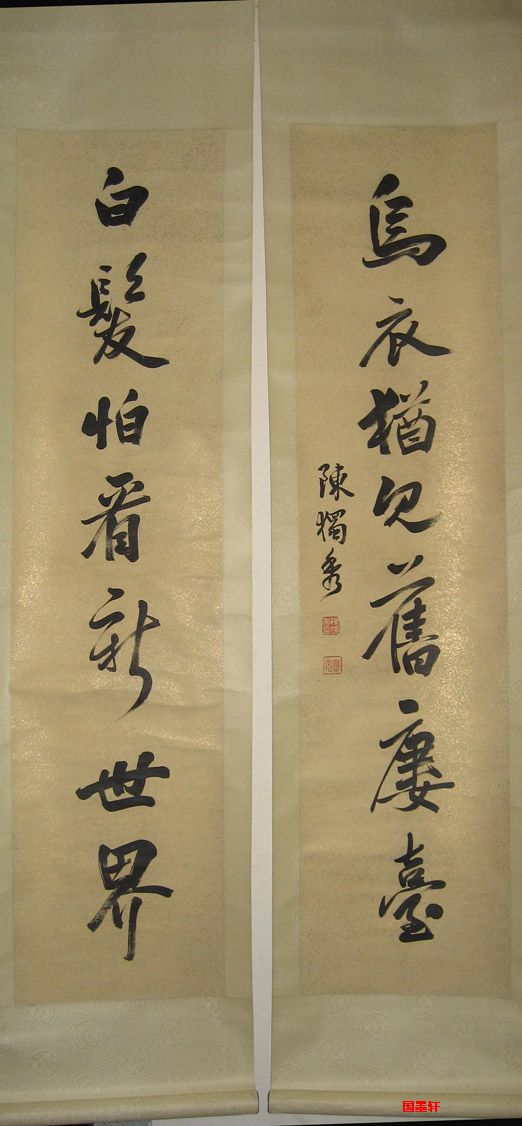 烏衣猶見舊廔臺
陳獨秀
白髮怕看新世界
国墨轩